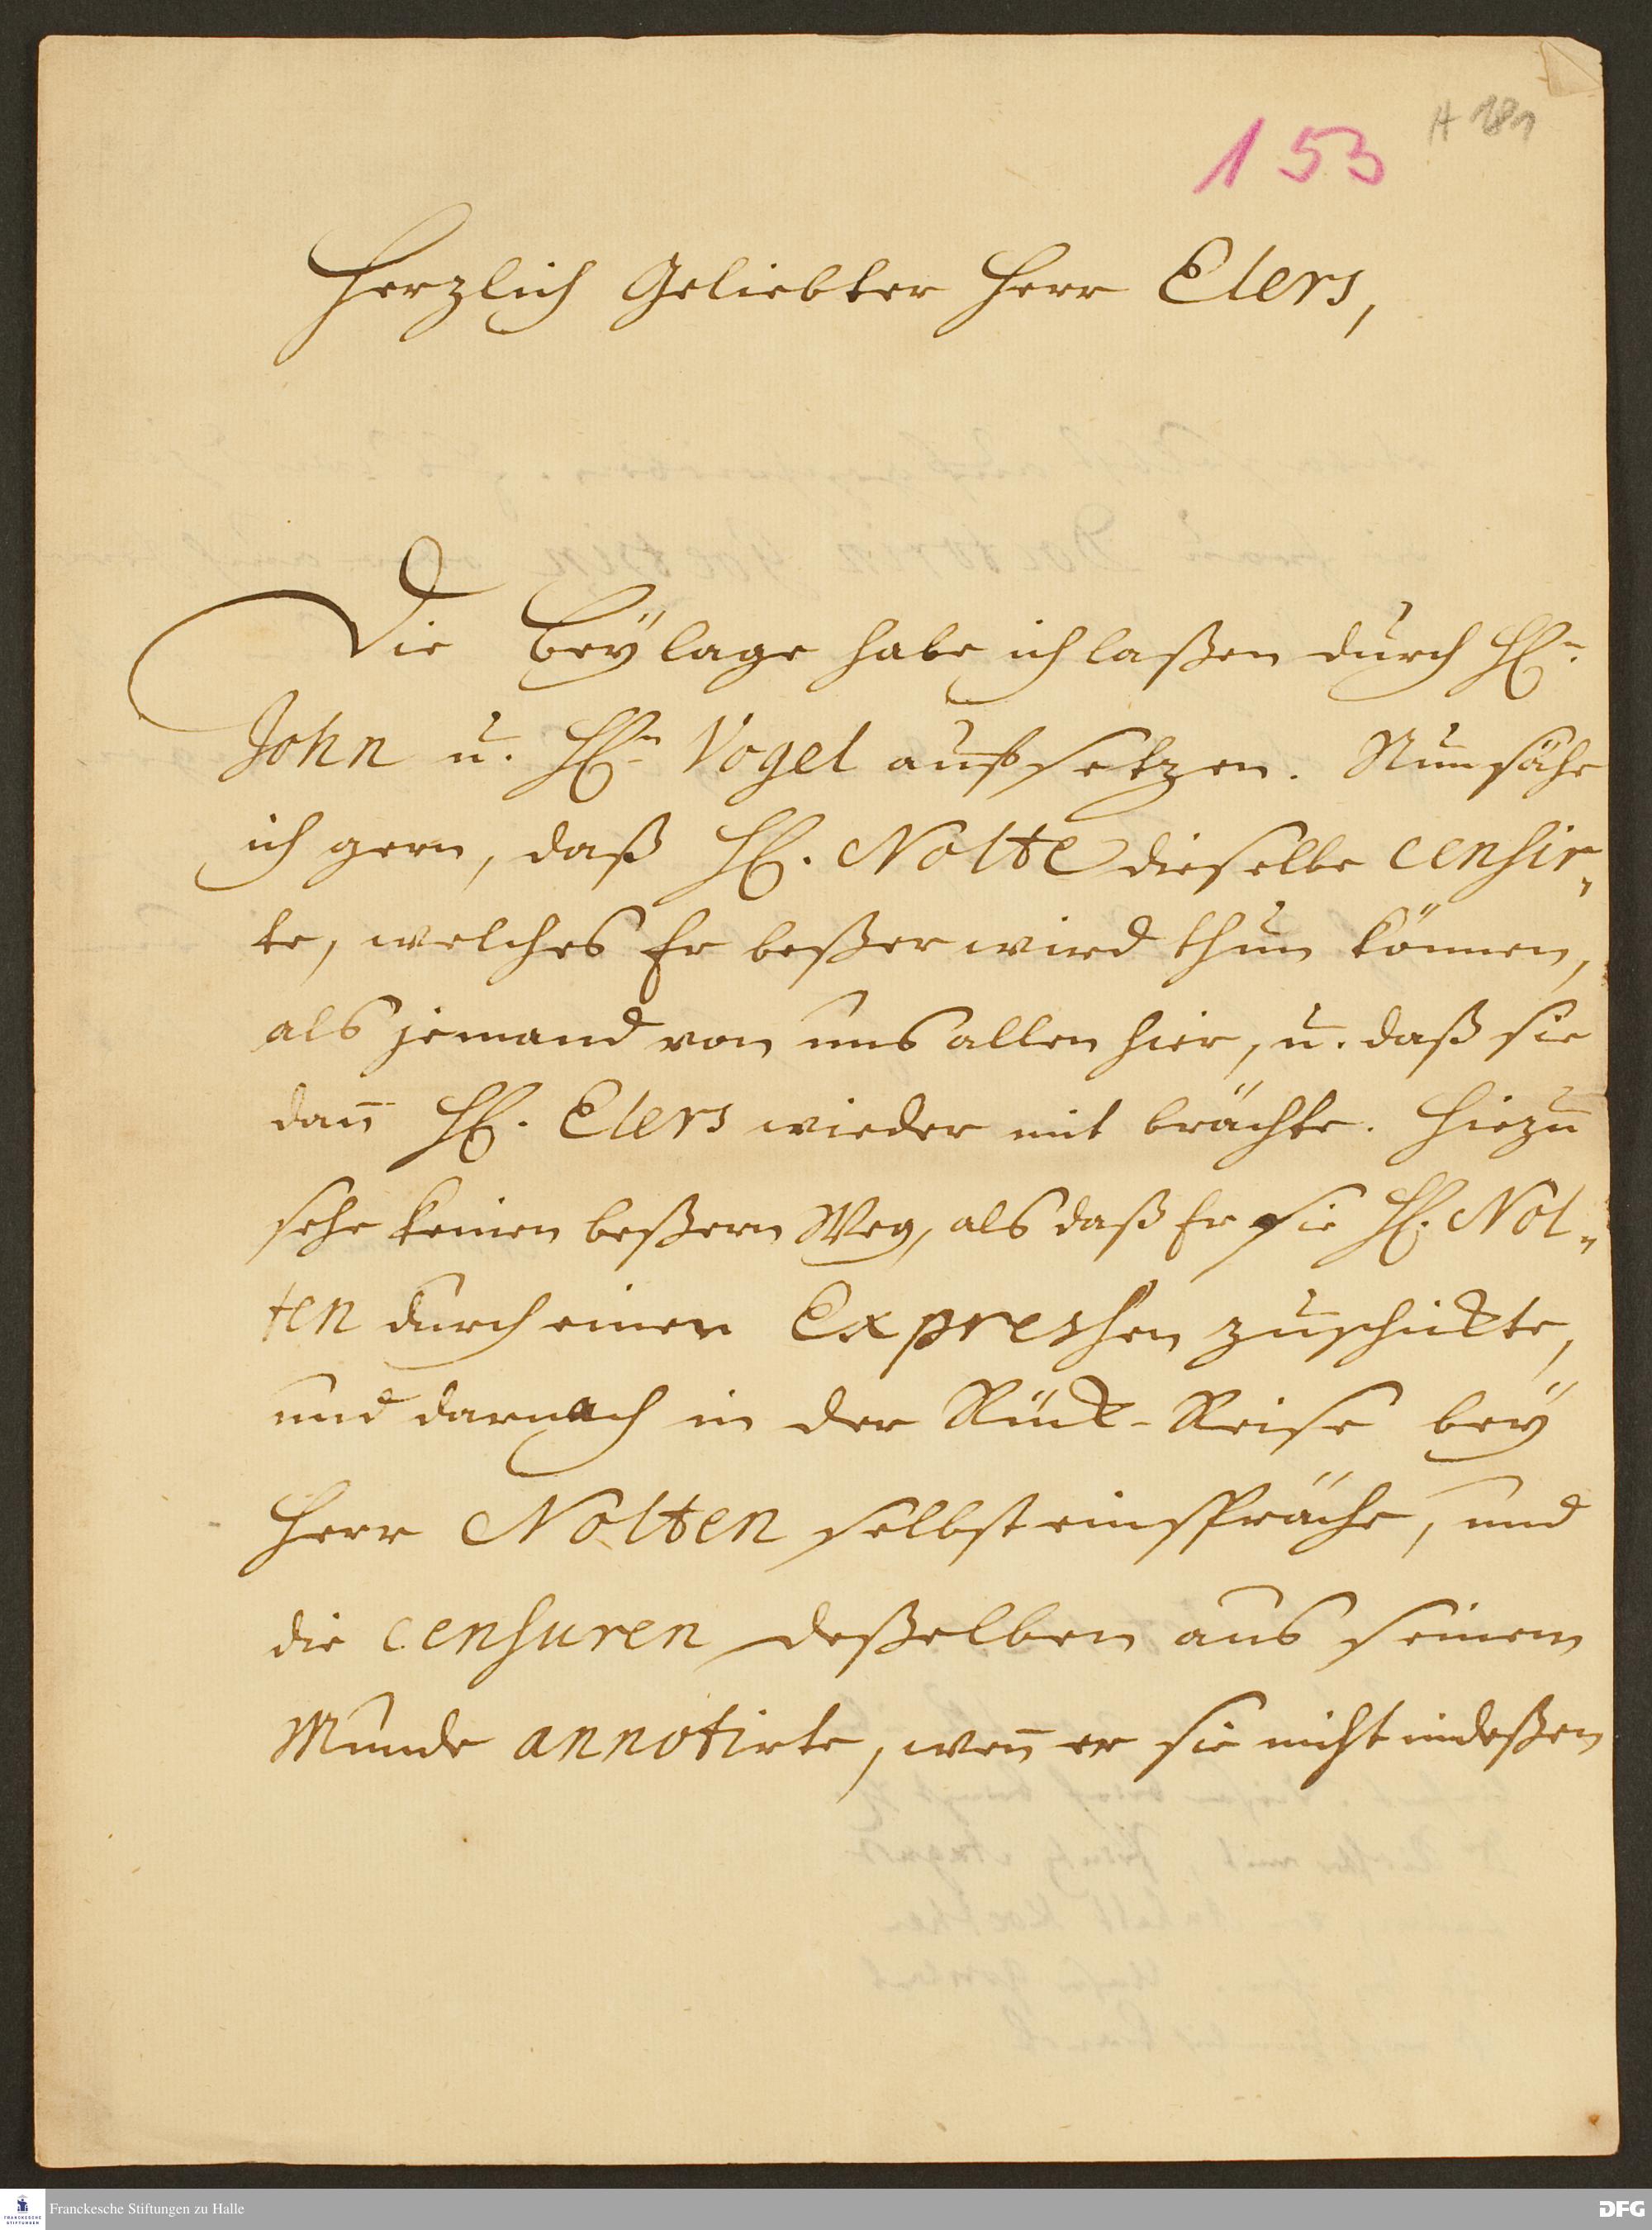 153 A 181
Herzlich Geliebter Herr Elers,
Die Beÿlage habe ich laßen durch H͠n
John u. H͠n Vogel auffsetzen. Nun sähe
ich gern, daß H. Nolte dieselbe censir„
te, welches Er beßer wird thun können,
als jemand von uns allen hier, u. daß sie
dan̄ H. Elers wieder mit brächte. Hiezu
sehe keinen beßern Weg, als daß Er sie H. Nol„
ten durch einen Expressen zuschickte,
und darnach in der Rück-Reise beÿ
Herr Nolten selbst einspräche, und
die censuren deßelben aus seinem
Munde annotirte, wen̄ er sie nicht indeßen
Franckesche Stiftungen zu Halle
DFG